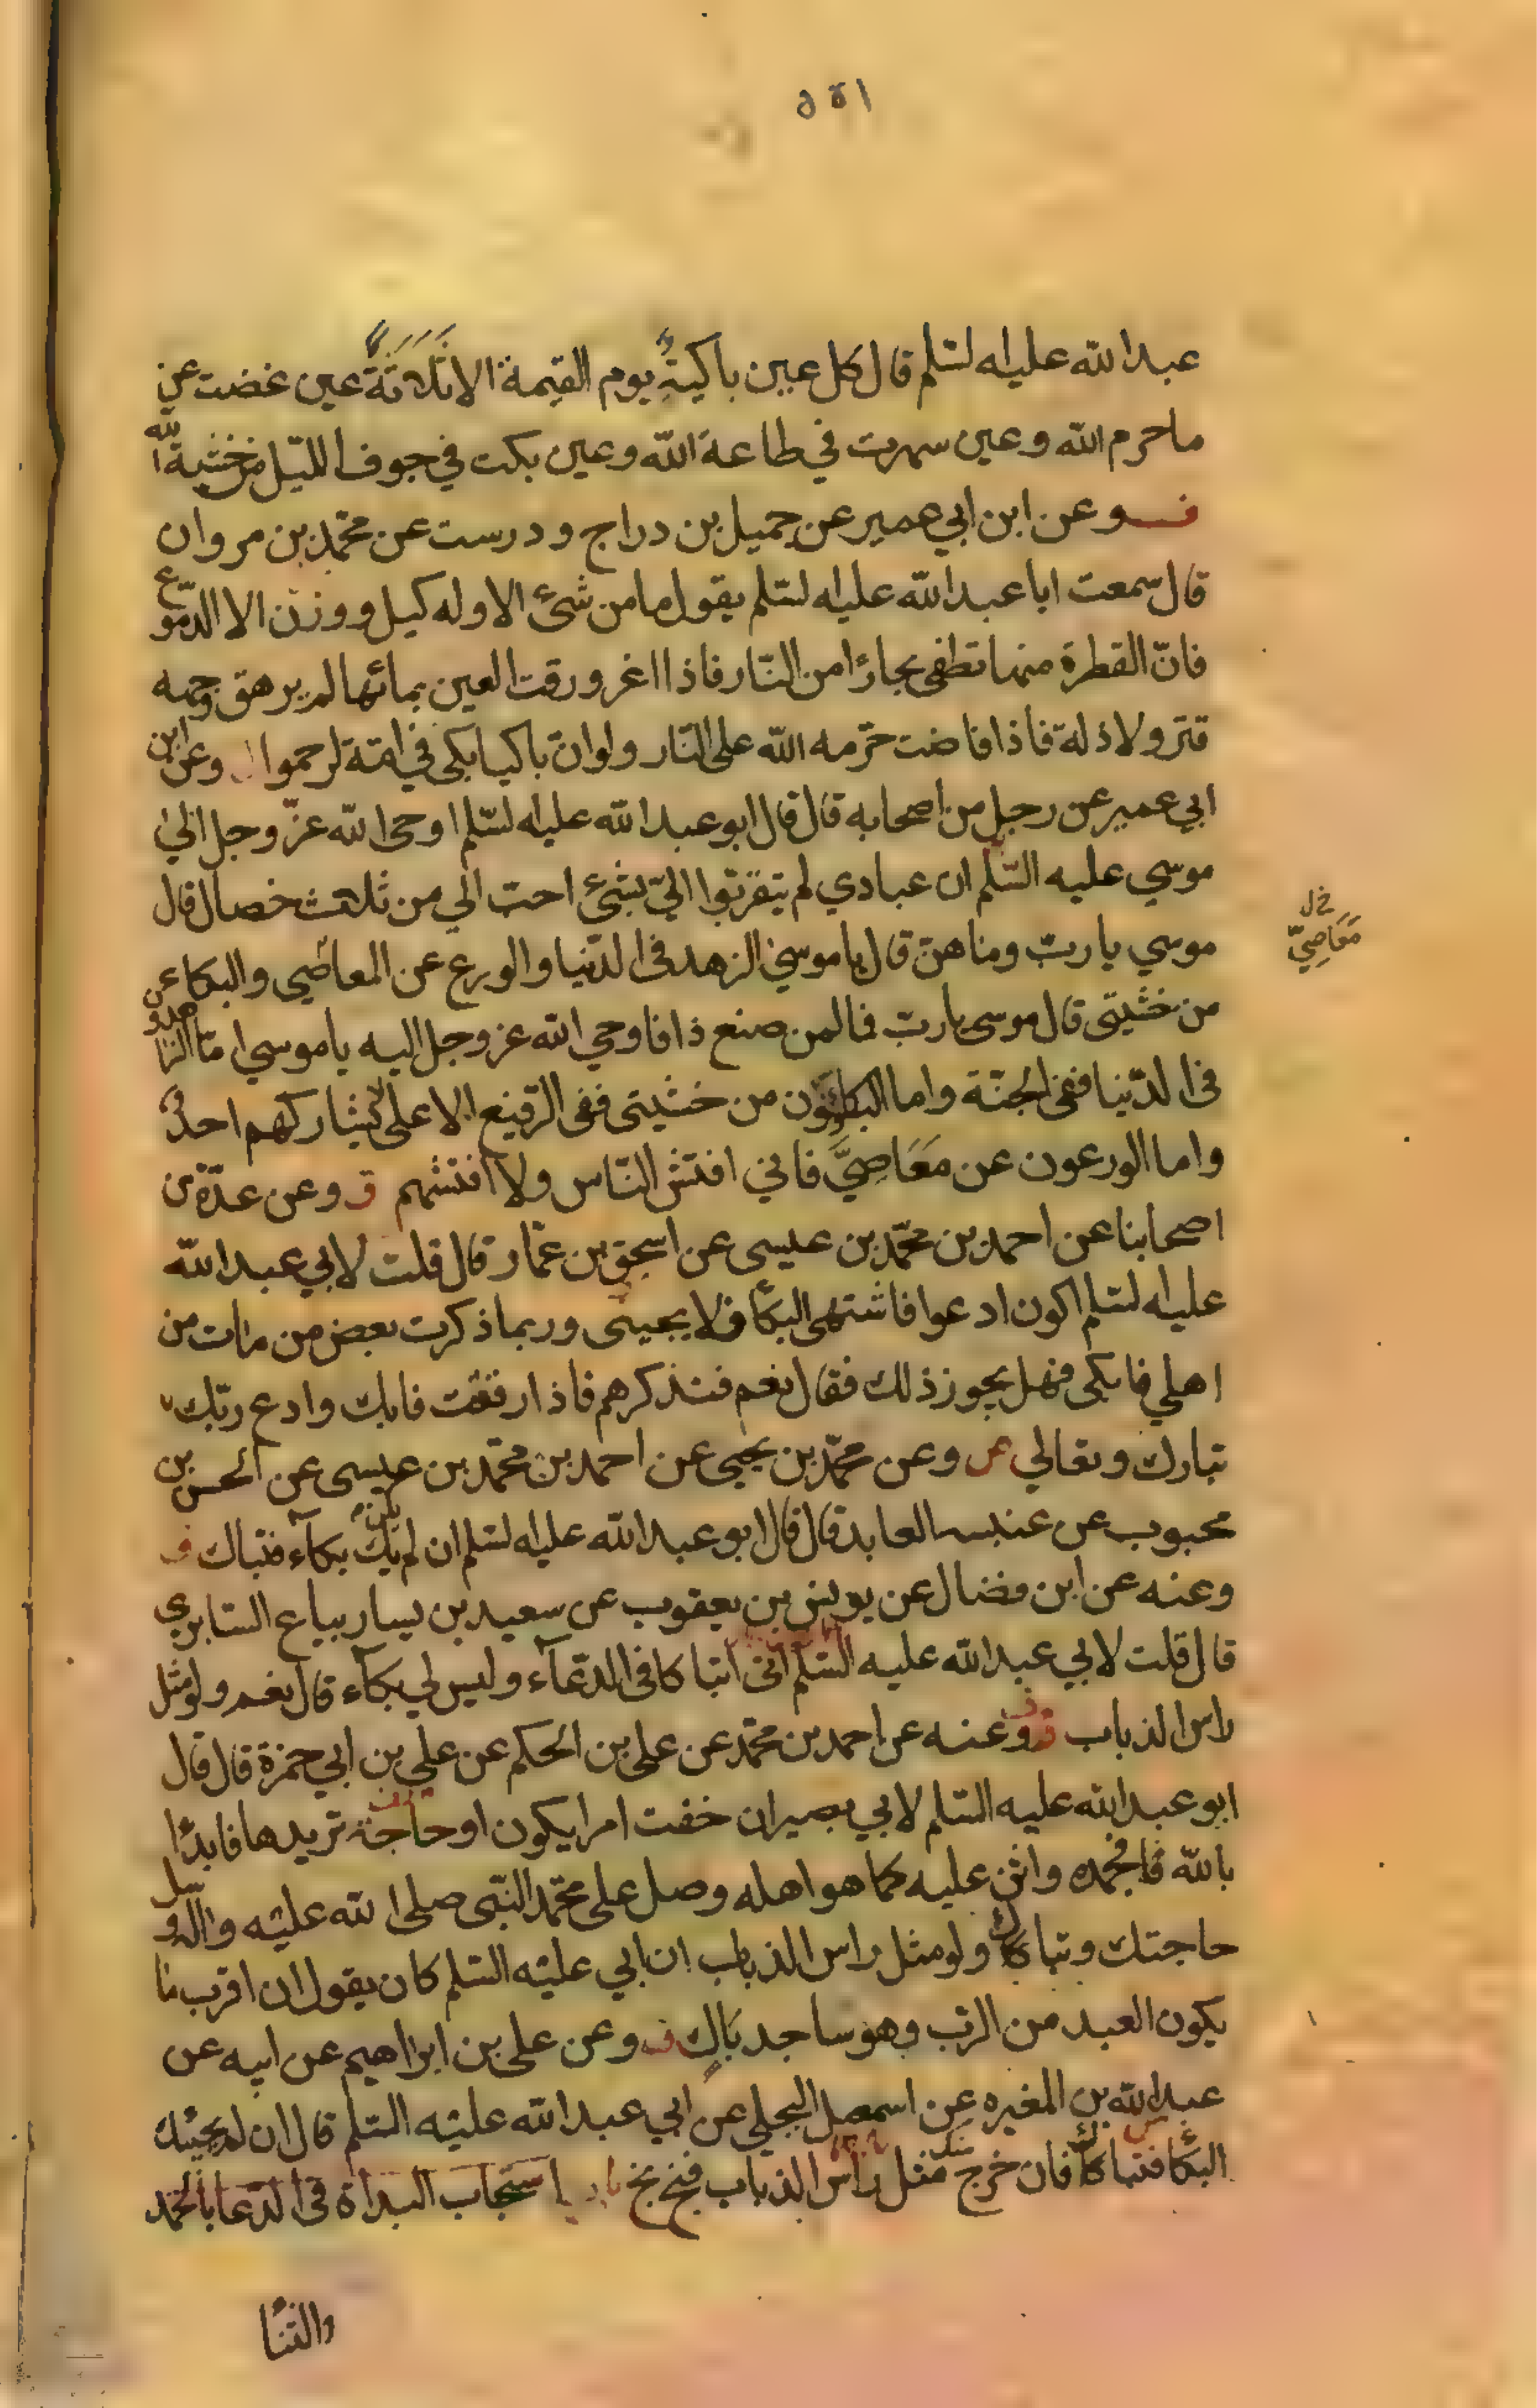 عبد الله عليه السلم قال كل عين باكية يوم القيمة الا ثلاثة عين غضت عن
ما حرم الله وعين سهرت في طاعة الله وعين بكت في جوف الليل من خشية الله
وعن ابن ابي عمير عن جميل بن دراج و درست عن محمد بن مروان
قال سمعت ابا عبد الله عليه السلم يقول ما من شئ الا وله كيل ووزن الا الدموع
فانّ القطرة منها تطفي بحارًا من النّار فاذا اغرورقت العين بمائها لم يرهق وجهه
قتر ولا ذلة فاذا فاضت حرّمه الله على النّار ولو ان باكيا بكى في امّة لرحموا وعن ابن
ابي عمير عن رجل من اصحابه قال قال ابو عبد الله عليه السّلم اوحى الله عزّ وجل الى
موسي عليه السّلم ان عبادي لم يتقرّبوا اليّ بشئ احبّ الي من ثلاث خصال قال
موسي يا ربّ وما هنّ قال يا موسي الزهد في الدّنيا والورع عن المعاصي والبكاء
من خشيتي قال موسى يا ربّ فما لمن صنع ذا فاوحي الله عز وجل اليه يا موسي امّا الزاهدون
في الدّنيا ففي الجنّة واما البكاؤن من خشيتي ففي الرفيع الاعلى لا يشاركهم احد
واما الورعون عن مَعَاصِيَّ فاني افتش النّاس ولا افتشهم ق وعن عدّة من
اصحابنا عن احمد بن محمّد بن عيسى عن اسحق بن عمّار قال قلت لابي عبد الله
عليه السلم اكون ادعوا فاشتهى البكا فلا يجيئني وربما ذكرت بعض من مات من
اهلي فابكى فهل يجوز ذلك فقال نعم فتذكرهم فاذا رققت فابك وادع ربّك
تبارك وتعالي وعن محمّد بن يحيى عن احمد بن محمّد بن عيسى عن الحسن بن
محبوب عن عنبسه العابد قال قال ابو عبد الله عليه السلم ان لم يك بكاء فتباك
وعنه عن ابن فضال عن يونس بن يعقوب عن سعيد بن يسار بياع السّابري
قال قلت لابي عبد الله عليه السّلم انى اتباكا في الدّعآء وليس لي بكآء قال نعم ولو مثل
راس الذباب وعنه عن احمد بن محمّد عن على بن الحكم عن علي بن ابي حمزة قال قال
ابو عبد الله عليه السّلم لابي بصير ان خفت امرا يكون او حاجة تريدها فابدا
بالله فمجده واثن عليه كما هو اهله وصل على محمّد النّبي صلى الله عليه واله وسل
حاجتك وتباك ولو مثل راس الذباب ان ابي عليه السّلم كان يقول ان اقرب ما
يكون العبد من الربّ وهو ساجد باكٍ وعن على بن ابراهيم عن ابيه عن
عبد الله بن المغيره عن اسمعيل البجلي عن ابي عبد الله عليه السّلم قال ان لم يجئك
البكا فتباك فان خرج مثل راس الذباب فبخ بخ باب استحباب البدأة في الدّعا بالحمد
والثنا
خ ل
مَعَاصِيّ